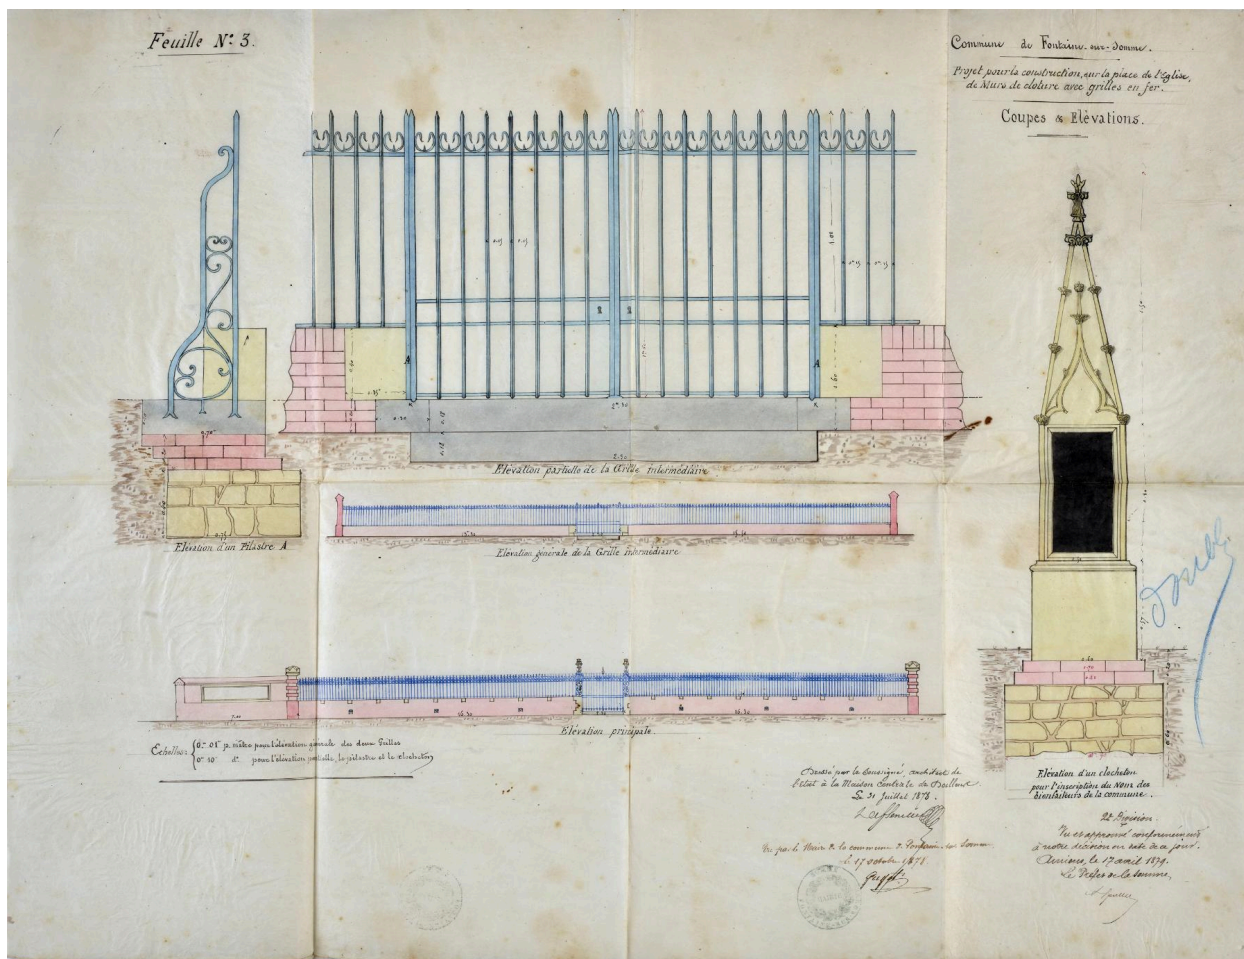 Feuille N.º 3.
Commune de Fontaine-sur-Somme.
Projet pour la construction, sur la place de l'Eglise,
de Murs de clôture avec grilles en fer.
Coupes & Elévations.
A
A
1.00
0.35
0.20
2.m 30
2.50
0.70
Elévation partielle de la Grille intermédiaire
Elévation d'un Pilastre A
Elévation générale de la Grille intermédiaire
7.00
16.30
16.30
Elévation principale.
Echelles
0.m 01c p. mètre pour l'élévation générale des deux Grilles
0m 10c d.º pour l'élévation partielle, le pilastre et le clocheton
Elévation d'un clocheton
pour l'inscription du Nom des
bienfaiteurs de la commune.
Double
Dressé par le Soussigné, architecte de
l'Etat à la Maison Centrale de Doullens.
Le 31 Juillet 1878.
Vu par le Maire de la commune de Fontaine-sur-Somme
le 17 octobre 1878.
2e Division.
Vu et approuvé conformément
à notre décision en date de ce jour.
Amiens, le 17 avril 1879.
Le Préfet de la Somme,